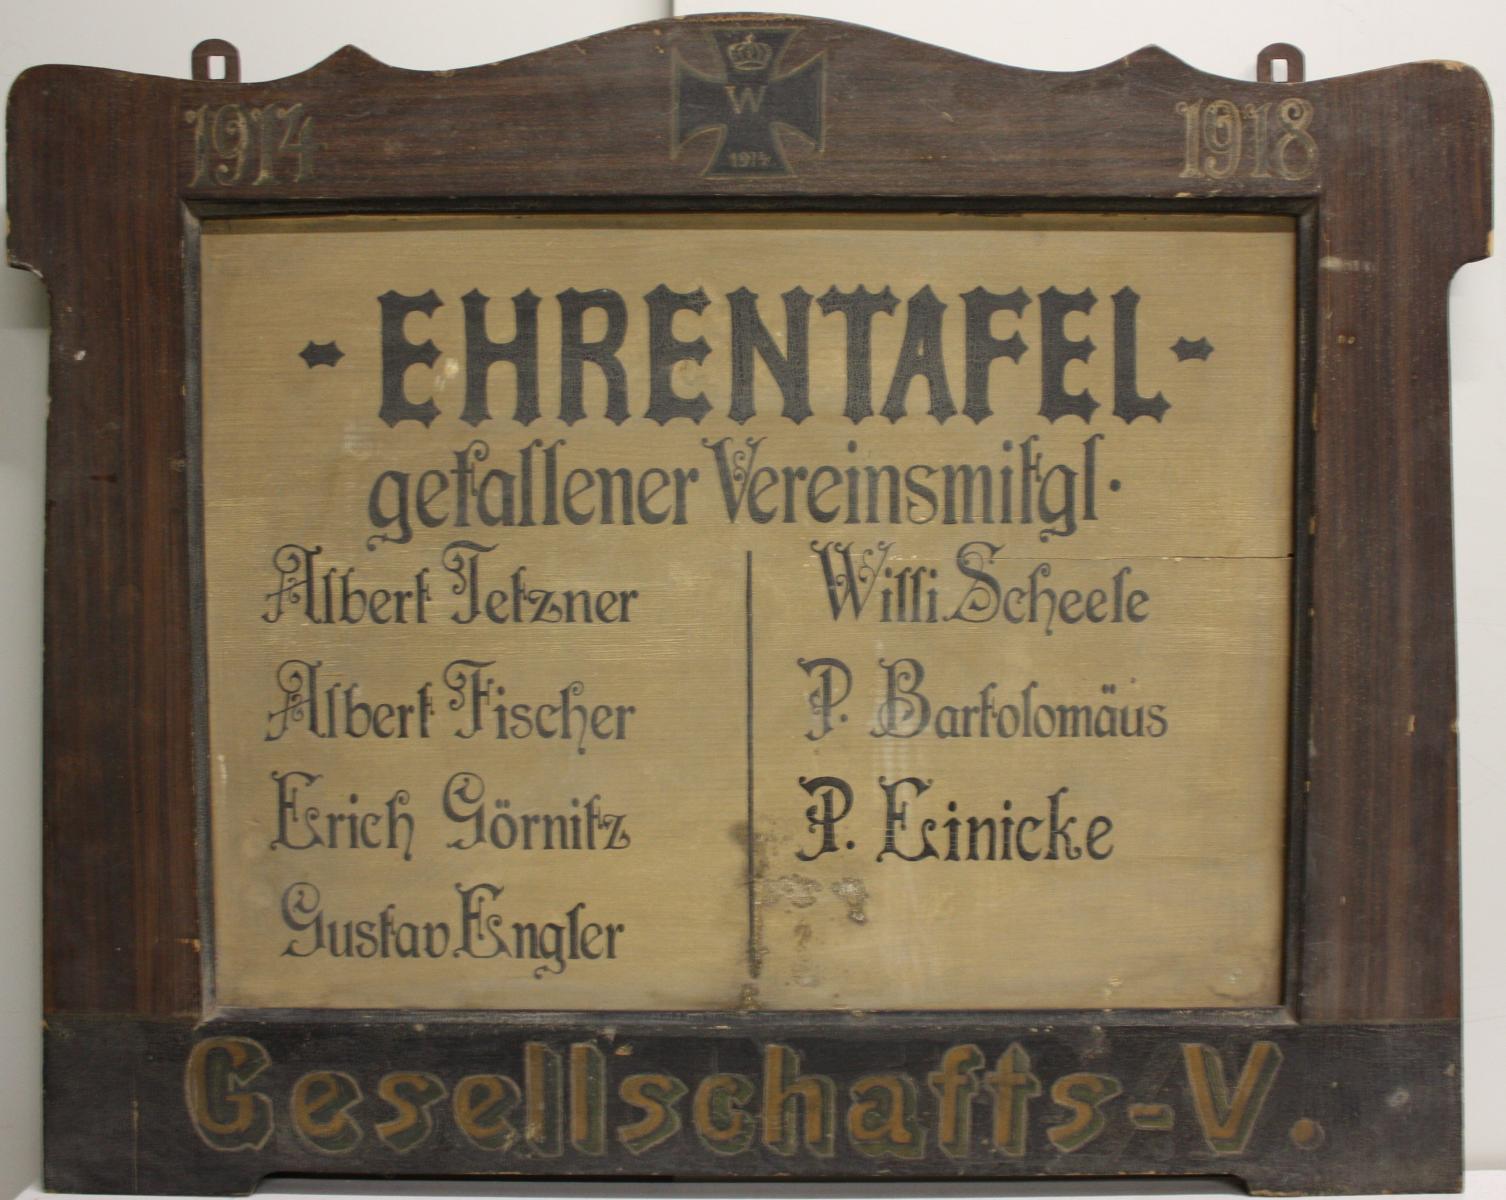 1914 W 1914 1918
- EHRENTAFEL -
gefallener Vereinsmitgl.
Albert Tetzner
Albert Fischer
Erich Görnitz
Gustav Engler
Willi Scheele
P. Bartolomäus
P. Einicke
Gesellschafts-V.